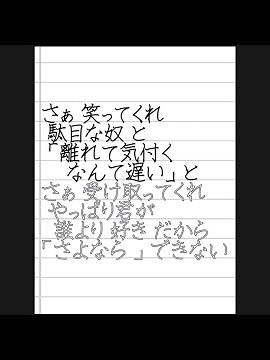 さぁ 笑ってくれ
駄目な奴 と
「離れて気付く
なんて遅い」と
さぁ 受け取ってくれ
やっぱり君が
誰より 好き だから
「さよなら 」できない